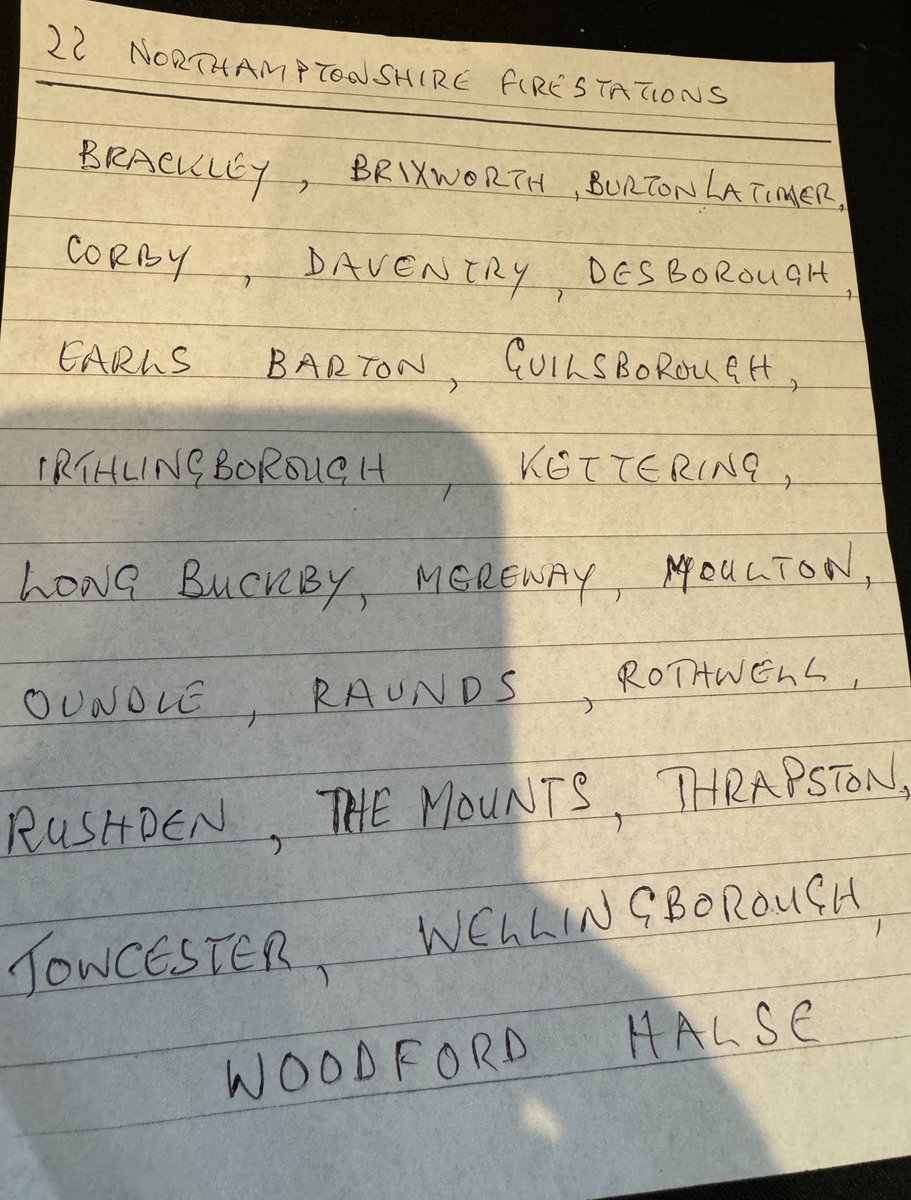 22 NORTHAMPTONSHIRE FIRESTATIONS
BRACKLEY, BRIXWORTH, BURTON LATIMER,
CORBY, DAVENTRY, DESBOROUGH,
EARLS BARTON, GUILSBOROUGH,
IRTHLINGBOROUGH, KETTERING,
LONG BUCKBY, MEREWAY, MOULTON,
OUNDLE, RAUNDS, ROTHWELL,
RUSHDEN, THE MOUNTS, THRAPSTON,
TOWCESTER, WELLINGBOROUGH,
WOODFORD HALSE